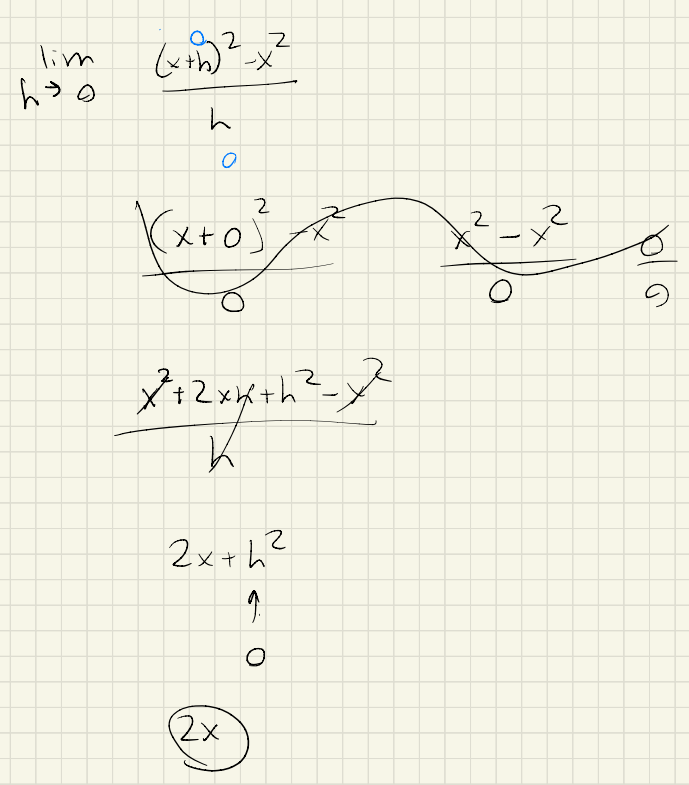 lim h→0 ((x+h)² - x²)/h
0
0
((x+0)² - x²)/0 (x² - x²)/0 0/0
(x² + 2xh + h² - x²)/h
2x + h²
↑
0
2x